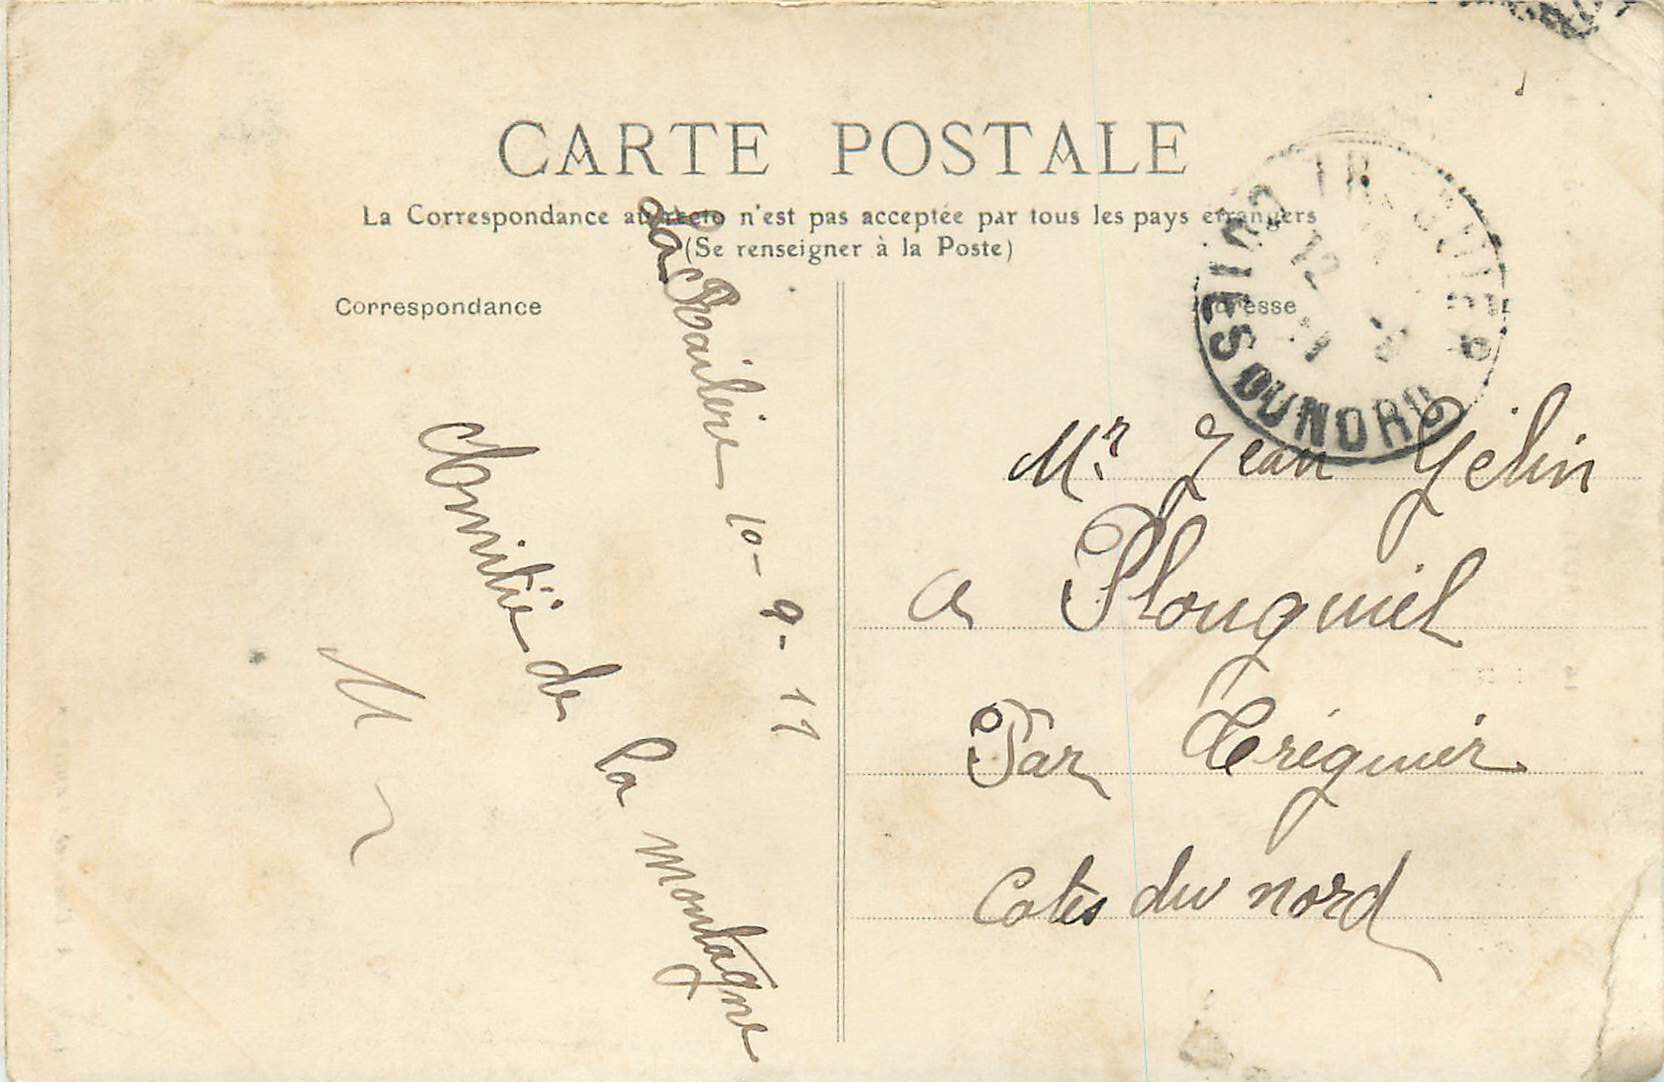 CARTE POSTALE
La Correspondance au recto n'est pas acceptée par tous les pays étrangers
(Se renseigner à la Poste)
Correspondance
Adresse
La Raillère 10-9-11
Amitié de la montagne
TREGUIER
COTES DU NORD
12
11
Mr. Jean Gélin
a Plouguiel
Par Tréguier
Cotes du nord